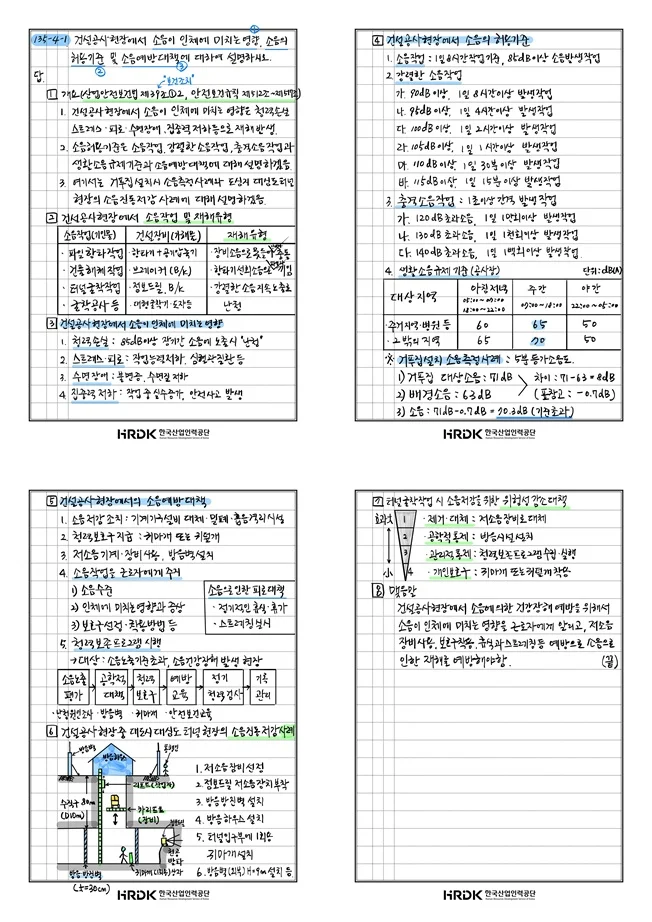 135-4-1 건설공사 현장에서 소음이 인체에 미치는 영향, 소음의
허용기준 및 소음예방대책에 대하여 설명하시오.
① ② ③
"보건조치"
답.
1 개요(산업안전보건법 제39조①2, 안전보건규칙 제512조~제517조)
1. 건설공사현장에서 소음이 인체에 미치는 영향은 청력손실
스트레스·피로·수면장애, 집중력 저하 등으로 재해 발생.
2. 소음허용기준은 소음작업, 강렬한 소음작업, 충격소음작업과
생활소음규제기준과 소음예방대책에 대해 설명하겠음.
3. 여기서는 거푸집설치시 소음측정사례와 도심지 대심도터널
현장의 소음진동저감 사례에 대해 설명하겠음.
2 건설공사현장에서 소음작업 및 재해유형
소음작업(기인물) 건설장비(가해물) 재해유형
·파일항타작업 ·항타기+공기압축기 ·장비소음으로 충돌
·건물해체작업 ·브레이커(B/K) ·항타기 끼임
·터널굴착작업 ·점보드릴, B/K ·강렬한 소음 지속노출로
·굴착공사 등 ·대형굴착기·도자등 난청
3 건설공사현장에서 소음이 인체에 미치는 영향
1. 청력손실 : 85dB이상 장기간 소음에 노출시 "난청"
2. 스트레스·피로 : 작업능력저하, 심혈관질환 등
3. 수면장애 : 불면증, 수면질 저하
4. 집중력 저하 : 작업 중 실수증가, 안전사고 발생
HRDK 한국산업인력공단
4 건설공사현장에서 소음의 허용기준
1. 소음작업 : 1일 8시간작업기준, 85dB이상 소음발생작업
2. 강렬한 소음작업
가. 90dB이상, 1일 8시간이상 발생작업
나. 95dB이상, 1일 4시간이상 발생작업
다. 100dB이상, 1일 2시간이상 발생작업
라. 105dB이상, 1일 1시간이상 발생작업
마. 110dB이상, 1일 30분이상 발생작업
바. 115dB이상, 1일 15분이상 발생작업
3. 충격소음작업 : 1초이상 간격 발생작업
가. 120dB초과소음, 1일 1만회이상 발생작업
나. 130dB초과소음, 1일 1천회이상 발생작업
다. 140dB초과소음, 1일 1백회이상 발생작업
4. 생활소음규제 기준(공사장) 단위:dB(A)
대상지역 아침저녁 주간 야간
05:00~07:00 07:00~18:00 22:00~05:00
18:00~22:00
주거지역·병원 등 60 65 50
그밖의지역 65 70 50
※ 거푸집설치 소음측정사례 : 5분 등가소음도.
1) 거푸집 대상소음 : 71dB 차이 : 71-63=8dB
2) 배경소음 : 63dB (표참고 : -0.7dB)
3) 소음 : 71dB-0.7dB = 70.3dB (기준초과)
HRDK 한국산업인력공단
5 건설공사현장에서의 소음예방대책
1. 소음저감 조치 : 기계기구설비 대체·밀폐·흡음격리시설
2. 청력보호구지급 : 귀마개 또는 귀덮개
3. 저소음기계·장비사용, 방음벽설치
4. 소음작업을 근로자에게 주지
1) 소음수준
2) 인체에 미치는영향과 증상
3) 보호구선정·착용방법 등
소음으로인한 피로대책
·정기적인 휴식·휴가
·스트레칭 실시
5. 청력보존 프로그램 시행
→대상 : 소음노출기준초과, 소음건강장해 발생 현장
소음노출평가 → 공학적대책 → 청력보호구 → 예방교육 → 정기청력검사 → 기록관리
·난청원인조사 ·방음벽 ·귀마개 ·안전보건교육
6 건설공사현장 중 대도시 대심도 터널 현장의 소음진동 저감사례
방음벽
방음하우스
리프트(작업자)
수직구 80m
(D10m)
카리프트
(장비)
방음방진벽
(t=30cm)
1. 저소음장비 선정
2. 점보드릴 저소음장치부착
3. 방음방진벽 설치
4. 방음하우스 설치
5. 터널입구부에 1회용
귀마개설치
6. 방음벽(외부) H=9m 설치 등
HRDK 한국산업인력공단
7 터널굴착작업 시 소음저감을 위한 위험성 감소대책
효과大 1 ·제거·대체 : 저소음장비로 대체
2 ·공학적통제 : 방음시설설치
3 ·관리적통제 : 청력보존프로그램 수립·실행
小 4 ·개인보호구 : 귀마개 또는 귀덮개착용
8 맺음말
건설공사현장에서 소음에의한 건강장해 예방을 위해서
소음이 인체에 미치는 영향을 근로자에게 알리고, 저소음
장비사용, 보호구착용, 휴식과 스트레칭 등 예방으로 소음으로
인한 재해로 예방해야함. (끝)
HRDK 한국산업인력공단